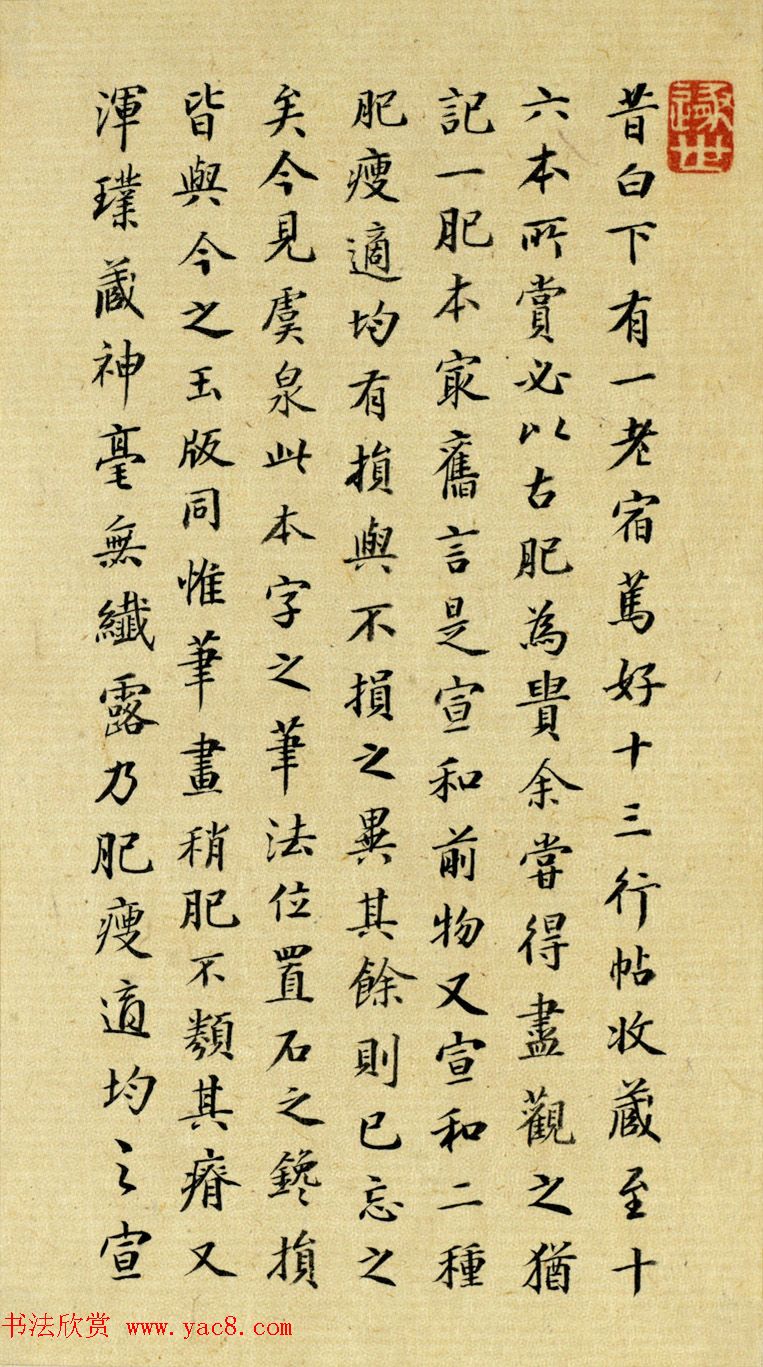 昔白下有一老宿篤好十三行帖收藏至十
六本所賞必以古肥為貴余嘗得盡觀之猶
記一肥本寂舊言是宣和前物又宣和二種
肥瘦適均有損與不損之異其餘則已忘之
矣今見虞泉此本字之筆法位置石之鑱損
皆與今之玉版同惟筆畫稍肥不纇其瘠又
渾璞藏神毫無纖露乃肥瘦適均之宣
书法欣赏 www.yac8.com